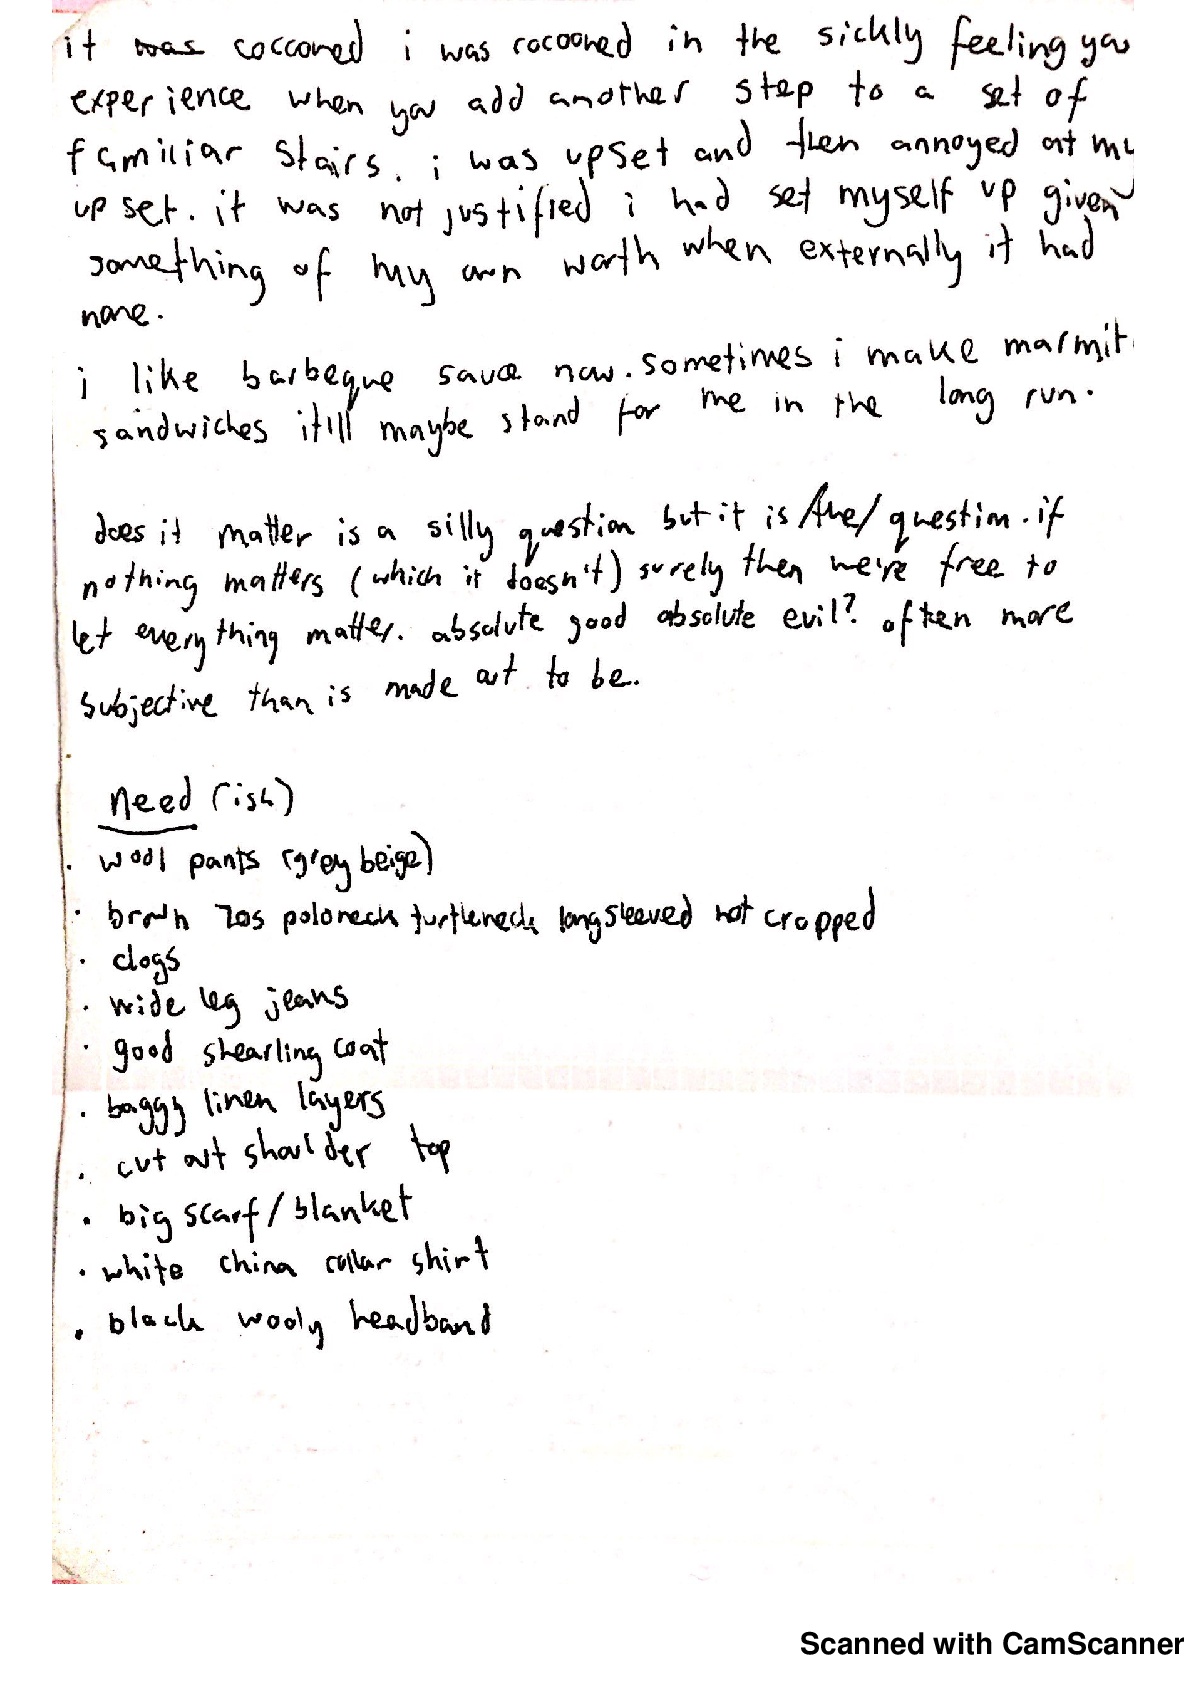 it was coccooned i was cocooned in the sickly feeling you
experience when you add another step to a set of
familiar stairs. i was upset and then annoyed at my
upset. it was not justified i had set myself up given
something of my own worth when externally it had
none.
i like barbeque sauce now. sometimes i make marmit
sandwiches itill maybe stand for me in the long run.
does it matter is a silly question but it is /the/ question. if
nothing matters (which it doesn't) surely then we're free to
let everything matter. absolute good absolute evil? often more
subjective than is made out to be.
need (ish)
. wool pants (grey beige)
· brown 70s poloneck turtleneck longsleeved not cropped
· clogs
· wide leg jeans
· good shearling coat
. baggy linen layers
. cut out shoulder top
• big scarf/blanket
· white china collar shirt
. black wooly headband
Scanned with CamScanner